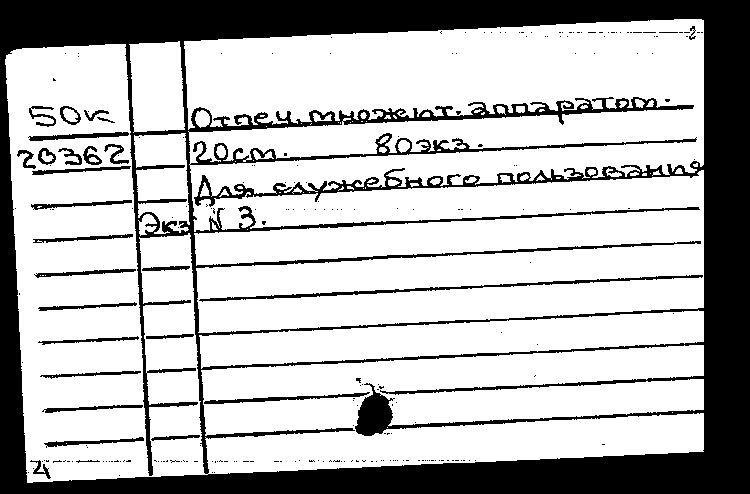 2
50к Отпеч. множит. аппаратом.
20362 20см. 80экз.
Для служебного пользования
Экз N 3.
4